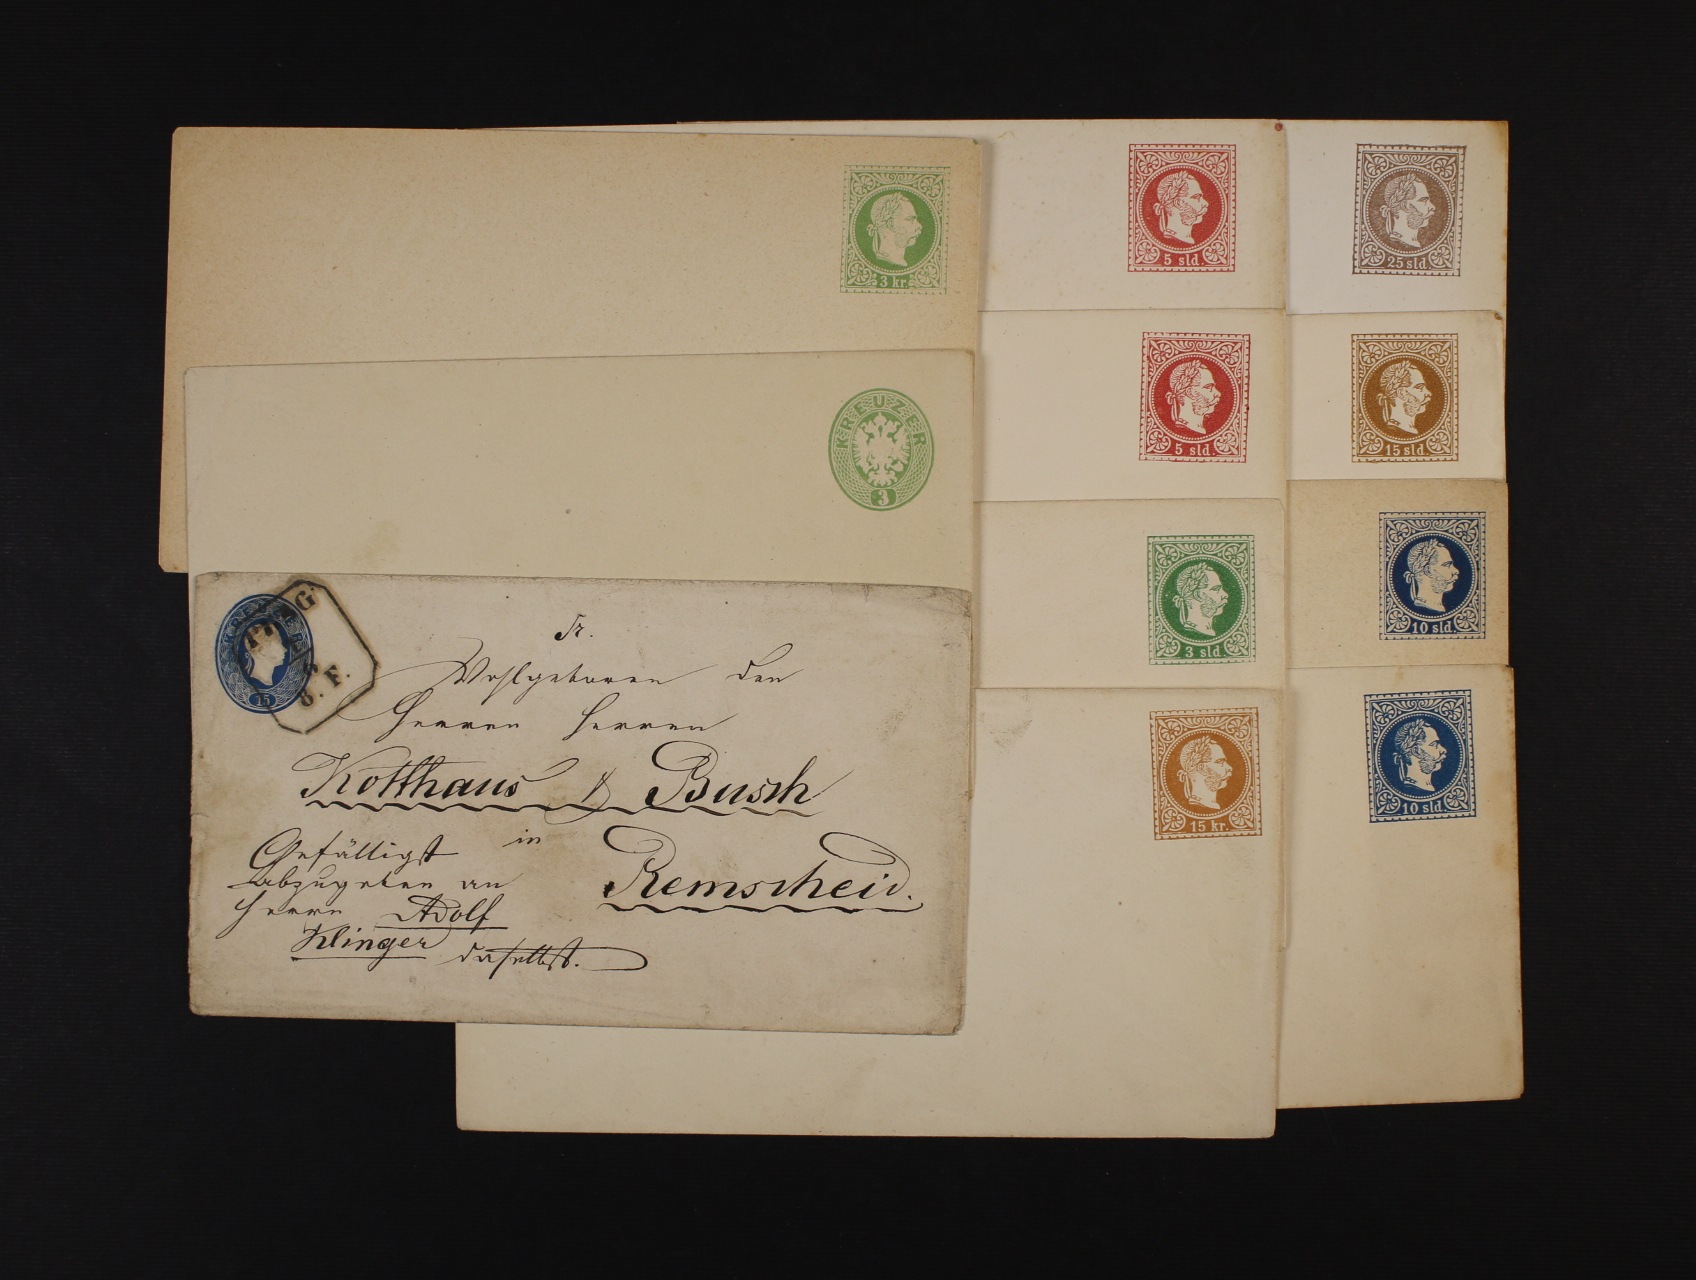 3 kr.
KREUZER
3
5 sld.
25 sld.
5 sld.
15 sld.
3 sld.
10 sld.
15 kr.
10 sld.
KREUZER
15
8. F.
Sr.
Wohlgeboren den
Herren Herren
Kotthaus & Busch
in
Remscheid.
Gefälligst
abzugeben an
Herrn Adolf
Klinger daselbst.